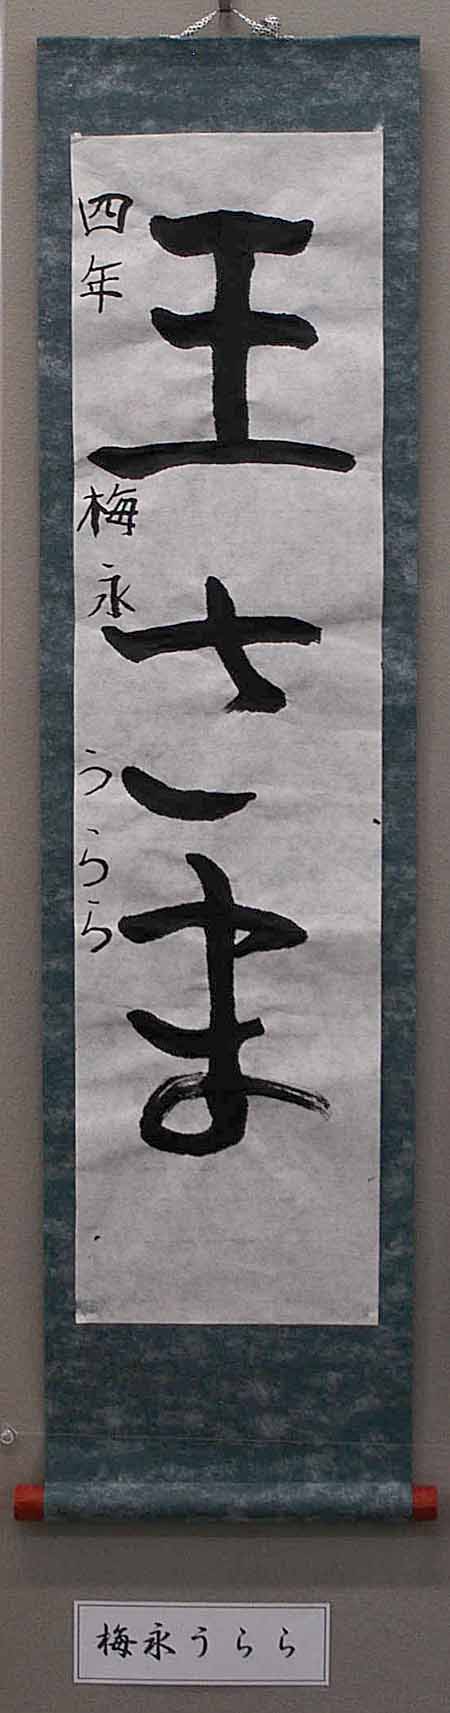 王さま
四年 梅永 うらら
梅永うらら